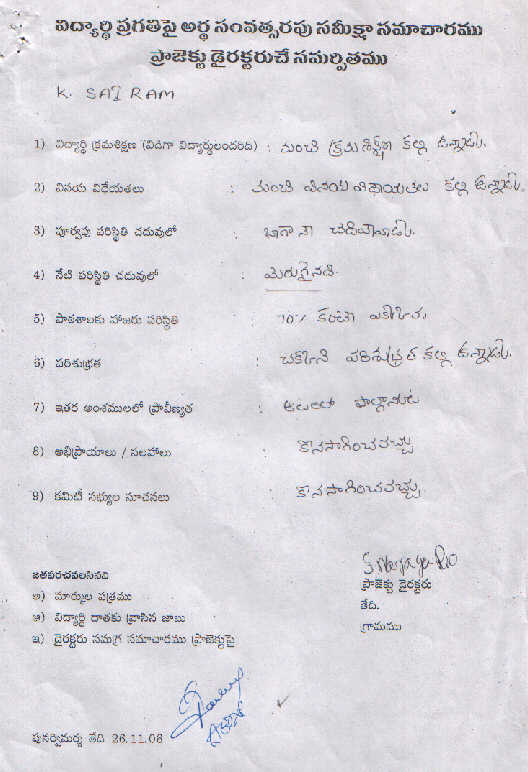 విద్యార్థి ప్రగతిపై అర్థ సంవత్సరపు సమీక్షా సమాచారము
ప్రాజెక్టు డైరక్టరుచే సమర్పితము
K. SAI RAM
1) విద్యార్థి క్రమశిక్షణ (విడిగా విద్యార్థులందరిది) : మంచి క్రమశిక్షణ కల్గి ఉన్నాడు.
2) వినయ విధేయతలు : మంచి వినయ విధేయతలు కల్గి ఉన్నాడు.
3) పూర్వపు పరిస్థితి చదువులో : బాగానే చదివేవాడు.
4) నేటి పరిస్థితి చదువులో : మెరుగైనది.
5) పాఠశాలకు హాజరు పరిస్థితి : 70% కంటే ఎక్కువ
6) పరిశుభ్రత : చక్కని పరిశుభ్రత కల్గి ఉన్నాడు.
7) ఇతర అంశములలో ప్రావీణ్యత : ఆటలలో పాల్గొనును
8) అభిప్రాయాలు / సలహాలు : కొనసాగించవచ్చు
9) కమిటీ సభ్యుల సూచనలు : కొనసాగించవచ్చు
జతపరచవలసినవి
ప్రాజెక్టు డైరక్టరు
అ) మార్కుల పత్రము
తేది.
ఆ) విద్యార్థి దాతకు వ్రాసిన జాబు
గ్రామము
ఇ) డైరక్టరు సమగ్ర సమాచారము ప్రాజెక్టుపై
పునర్విమర్శ తేది 26.11.08